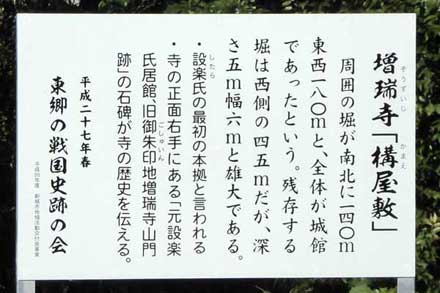 増瑞寺「構屋敷」
ぞうずいじ かまえ
周囲の堀が南北に一四〇m
東西一八〇mと、全体が城館
であったという。残存する
堀は西側の四五mだが、深
さ五m幅六mと雄大である。
・設楽氏の最初の本拠と言われる
したら
・寺の正面右手にある「元設楽
氏居館、旧御朱印地増瑞寺山門
ごしゅいん
跡」の石碑が寺の歴史を伝える。
平成二十七年春
東郷の戦国史跡の会